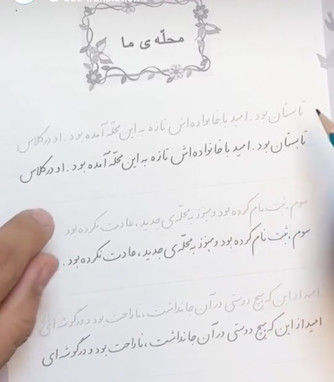 محلّه‌ی ما
تابستان بود. امید با خانواده‌اش تازه به این محلّه آمده بود. او در کلاس
تابستان بود. امید با خانواده‌اش تازه به این محلّه آمده بود. او در کلاس
سوم، ثبت نام کرده بود و هنوز به محلّه‌ی جدید، عادت نکرده بود
سوم، ثبت نام کرده بود و هنوز به محلّه‌ی جدید، عادت نکرده بود.
امید از این که هیچ دوستی در آن جا نداشت، ناراحت بود و در گوشه‌ای
امید از این که هیچ دوستی در آن جا نداشت، ناراحت بود و در گوشه‌ای